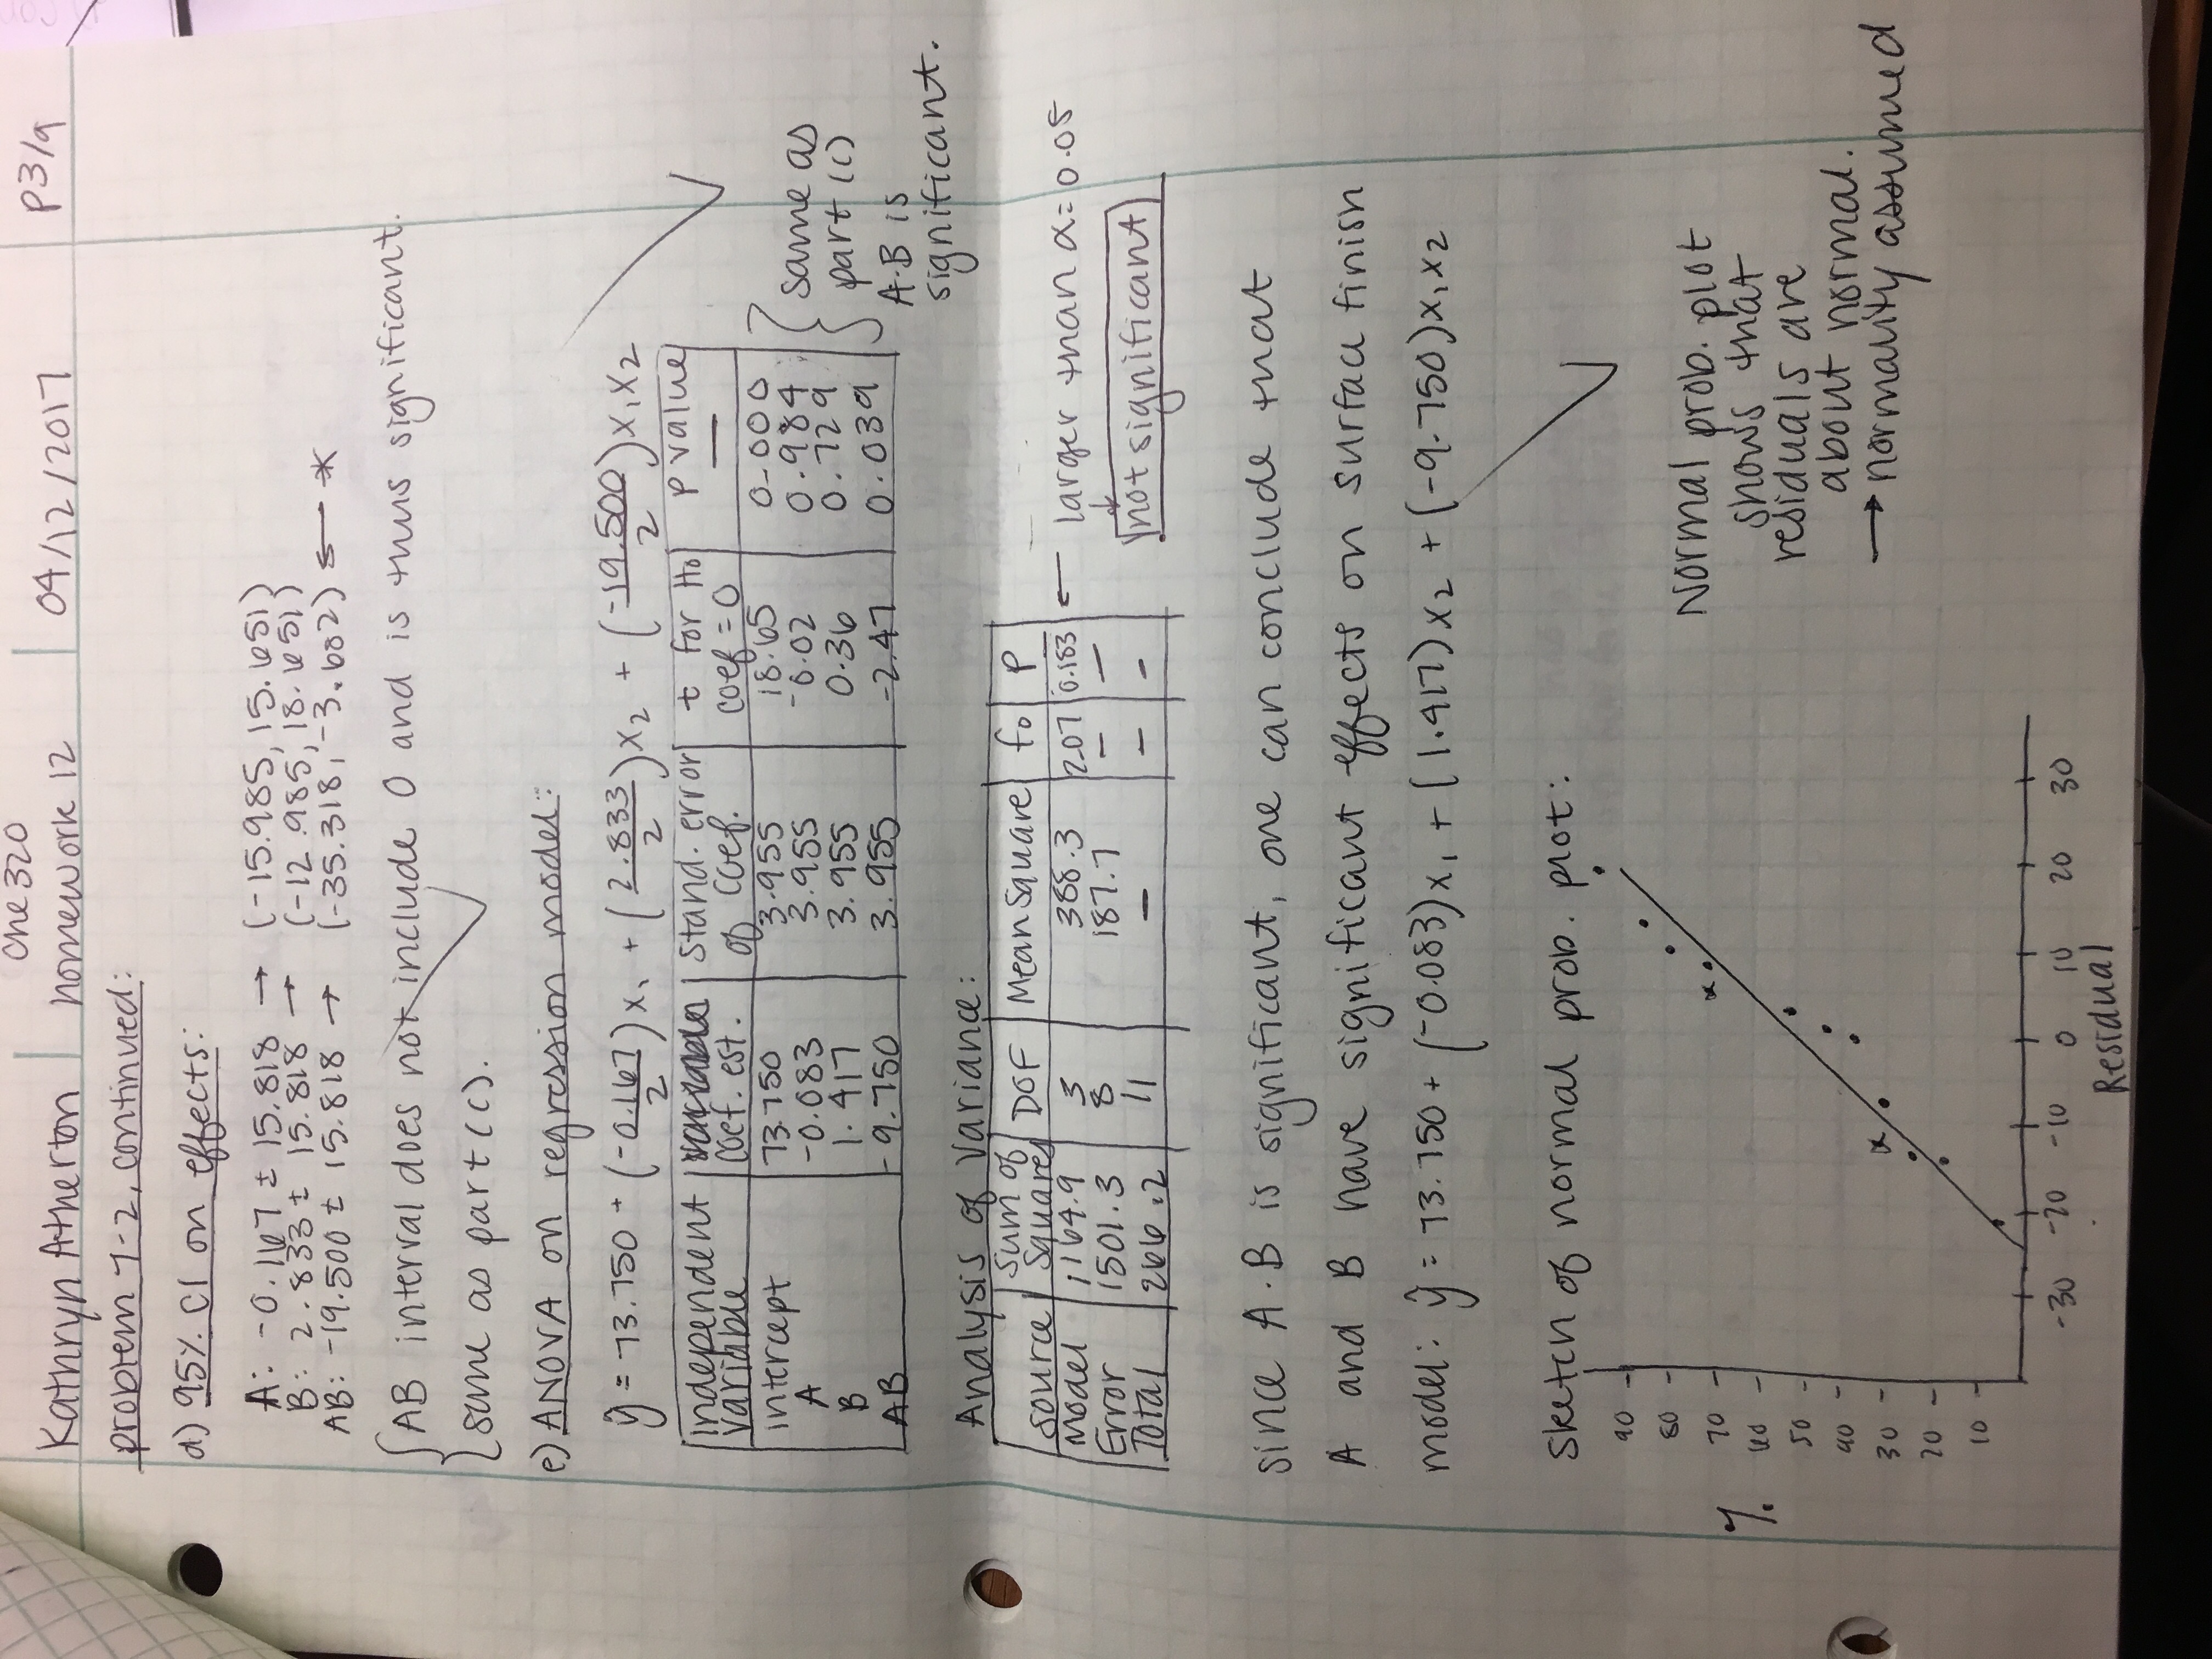 Che 320
Kathryn Atherton homework 12 04/12/2017 P3/9
problem 7-2, continued:
d) 95% CI on effects:
A: -0.167 ± 15.818 → (-15.985, 15.651)
B: 2.833 ± 15.818 → (-12.985, 18.651)
AB: -19.500 ± 15.818 → (-35.318, -3.682) ← *
AB interval does not include 0 and is thus significant.
same as part (c).
e) ANOVA on regression model:
ŷ = 73.750 + (-0.167/2)x₁ + (2.833/2)x₂ + (-19.500/2)x₁x₂
independent variable | coef. est. | stand. error of coef. | t for H₀ coef = 0 | P value —
intercept 73.750 3.955 18.65 0.000
A -0.083 3.955 -0.02 0.984
B 1.417 3.955 0.36 0.729
AB -9.750 3.955 -2.47 0.039
same as
part (c)
A·B is
significant.
Analysis of Variance:
source | Sum of Squares | DOF | Mean Square | f₀ | P
Model 1164.9 3 388.3 2.07 0.183 ← larger than α = 0.05
Error 1501.3 8 187.7 — —
↓
not significant
Total 266.2 11 — — —
since A·B is significant, one can conclude that
A and B have significant effects on surface finish
model: ŷ = 73.750 + (-0.083)x₁ + (1.417)x₂ + (-9.750)x₁x₂
sketch of normal prob. plot:
90
80
70
60
50
40
30
20
10
%
-30 -20 -10 0 10 20 30
Residual
Normal prob. plot
shows that
residuals are
about normal.
→ normality assumed